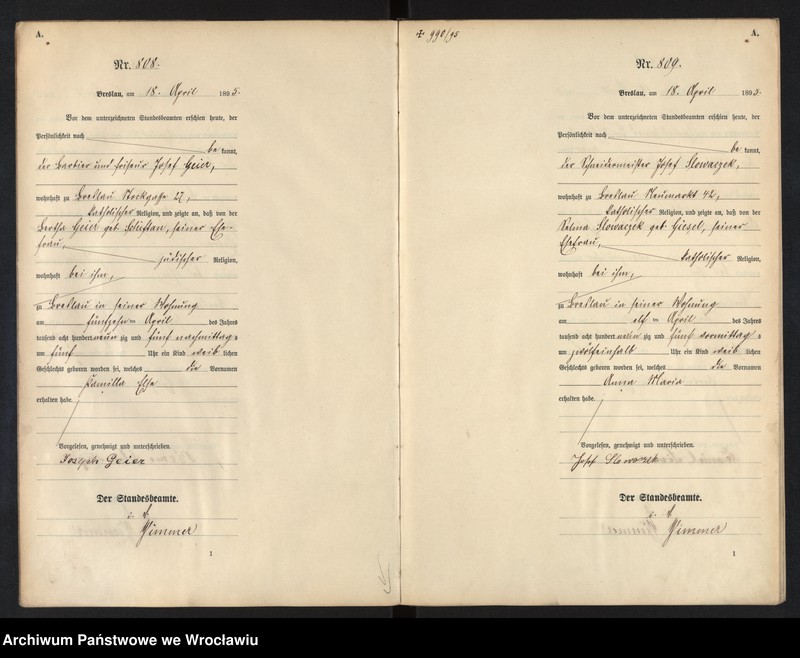 A.
Nr. 808.
Breslau, am 18. April 1895.
Vor dem unterzeichneten Standesbeamten erschien heute, der
Persönlichkeit nach
be kannt,
der Barbier und Friseur Josef Geier,
wohnhaft zu Breslau Stockgasse 27,
katholischer Religion, und zeigte an, daß von der
Bertha Geier geb. Schiftan, seiner Ehe-
frau,
jüdischer Religion,
wohnhaft bei ihm,
zu Breslau in seiner Wohnung
am fünfzehn ten April des Jahres
tausend acht hundert neun zig und fünf nachmittag s
um fünf Uhr ein Kind weib lichen
Geschlechts geboren worden sei, welches die Vornamen
Camilla Else
erhalten habe.
Vorgelesen, genehmigt und unterschrieben.
Joseph Geier
Der Standesbeamte.
Wimmer
1
✠ 990/95
A.
Nr. 809.
Breslau, am 18. April 1895.
Vor dem unterzeichneten Standesbeamten erschien heute, der
Persönlichkeit nach
be kannt,
der Schneidermeister Josef Slowaczek,
wohnhaft zu Breslau Neumarkt 42,
katholischer Religion, und zeigte an, daß von der
Selma Slowaczek geb. Giesel, seiner
Ehefrau,
katholischer Religion,
wohnhaft bei ihm,
zu Breslau in seiner Wohnung
am elf ten April des Jahres
tausend acht hundert neun zig und fünf vormittag s
um zwölfeinhalb Uhr ein Kind weib lichen
Geschlechts geboren worden sei, welches die Vornamen
Anna Maria
erhalten habe.
Vorgelesen, genehmigt und unterschrieben.
Josef Slowaczek
Der Standesbeamte.
Wimmer
1
Archiwum Państwowe we Wrocławiu